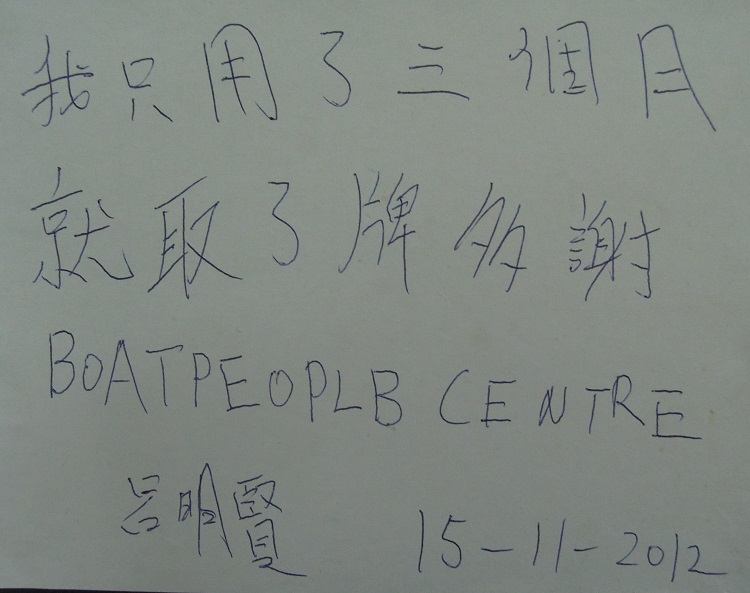 我只用了三個月
就取了牌多謝
BOATPEOPLB CENTRE
呂明賢 15-11-2012